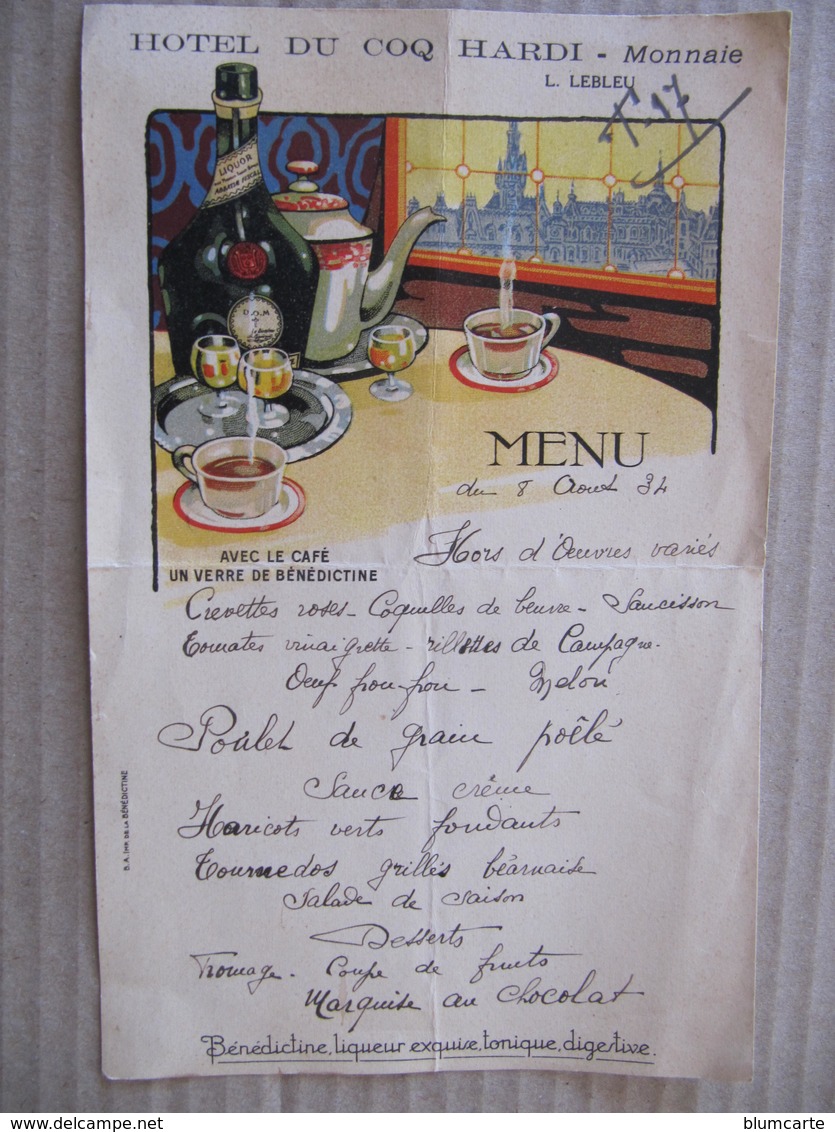 HOTEL DU COQ HARDI - Monnaie
L. LEBLEU
LIQUOR
D.O.M
MENU
du 8 Aout 34
AVEC LE CAFÉ
UN VERRE DE BÉNÉDICTINE
Hors d'Oeuvres variés
Crevettes roses - Coquilles de beurre - Saucisson
Tomates vinaigrette - rillettes de Campagne.
Oeuf frou-frou - Melon
Poulet de grain poêlé
Sauce crème
Haricots verts fondants
Tournedos grillés béarnaise
Salade de saison
Desserts
Fromage. Coupe de fruits
Marquise au Chocolat
Bénédictine, liqueur exquise, tonique, digestive.
B.A. IMP. DE LA BÉNÉDICTINE
delcampe.net
blumcarte